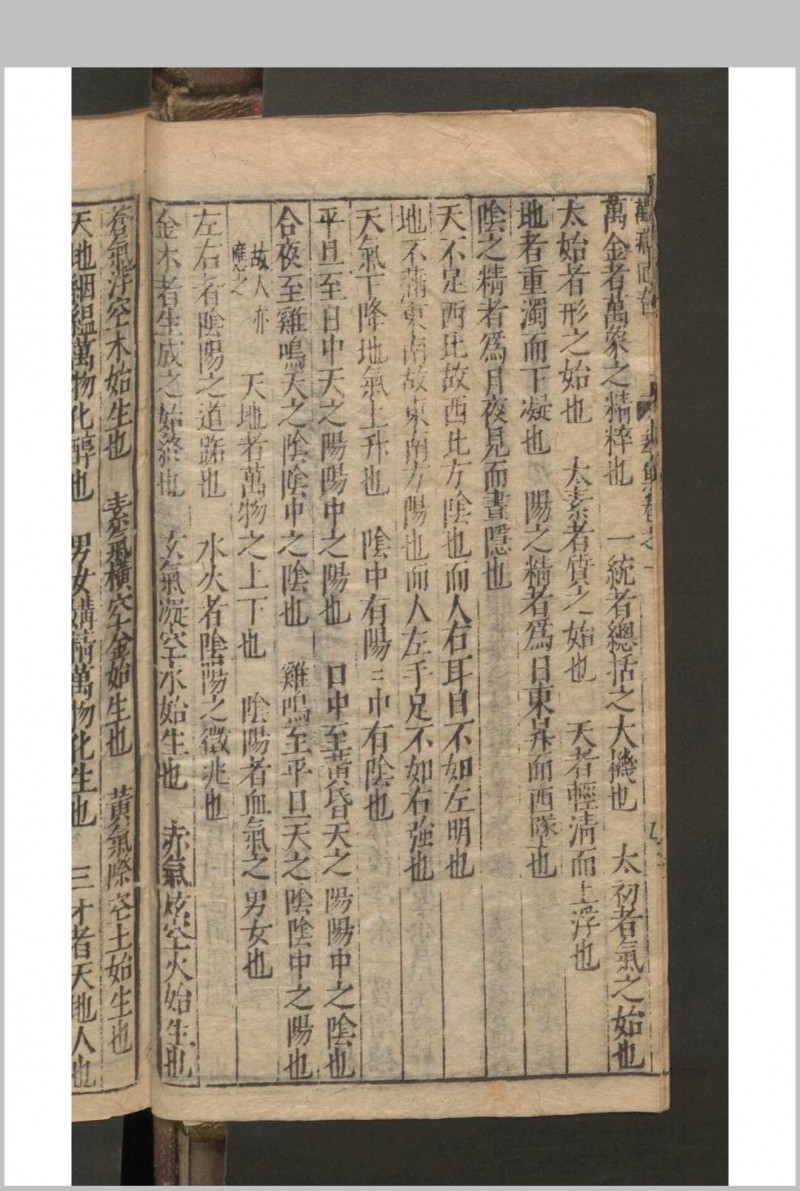 萬病回春
卷之一
萬金者萬象之精粹也　一統者總括之大機也　太初者氣之始也
太始者形之始也　太素者質之始也　天者輕清而上浮也
地者重濁而下凝也　陽之精者為日東昇而西墜也
陰之精者為月夜見而晝隱也
天不足西北故西北方陰也而人右耳目不如左明也
地不滿東南故東南方陽也而人左手足不如右強也
天氣下降地氣上升也　陰中有陽　中有陰也
平旦至日中天之陽陽中之陽也　日中至黃昏天之陽陽中之陰也
合夜至雞鳴天之陰陰中之陰也　雞鳴至平旦天之陰陰中之陽也
故人亦應之　天地者萬物之上下也　陰陽者血氣之男女也
左右者陰陽之道路也　水火者陰陽之徵兆也
金木者生成之始終也　玄氣凝空水始生也　赤氣炫空火始生也
蒼氣浮空木始生也　素氣橫空金始生也　黃氣際空土始生也
天地絪縕萬物化醇也　男女媾精萬物化生也　三才者天地人也